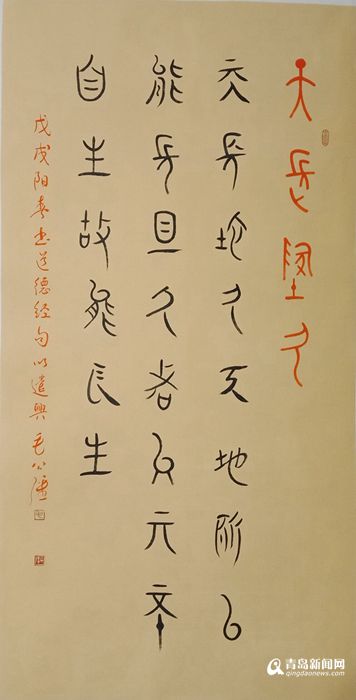 天長墬久
天長地久天地所以
能長且久者以亓不
自生故能長生
戊戌阳春书道德经句以遣興毛公强
青岛新闻网
qingdaonews.com